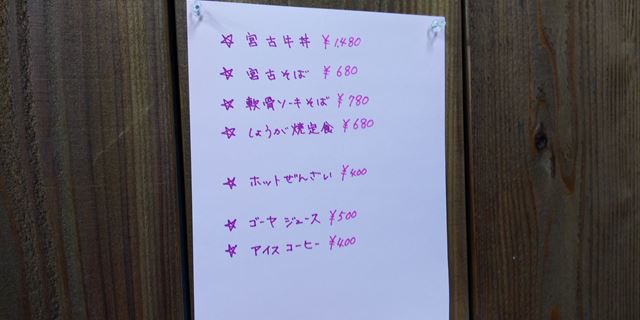 ☆ 宮古牛丼 ¥1,480
☆ 宮古そば ¥680
☆ 軟骨ソーキそば ¥780
☆ しょうが焼定食 ¥680
☆ ホットぜんざい ¥400
☆ ゴーヤジュース ¥500
☆ アイスコーヒー ¥400